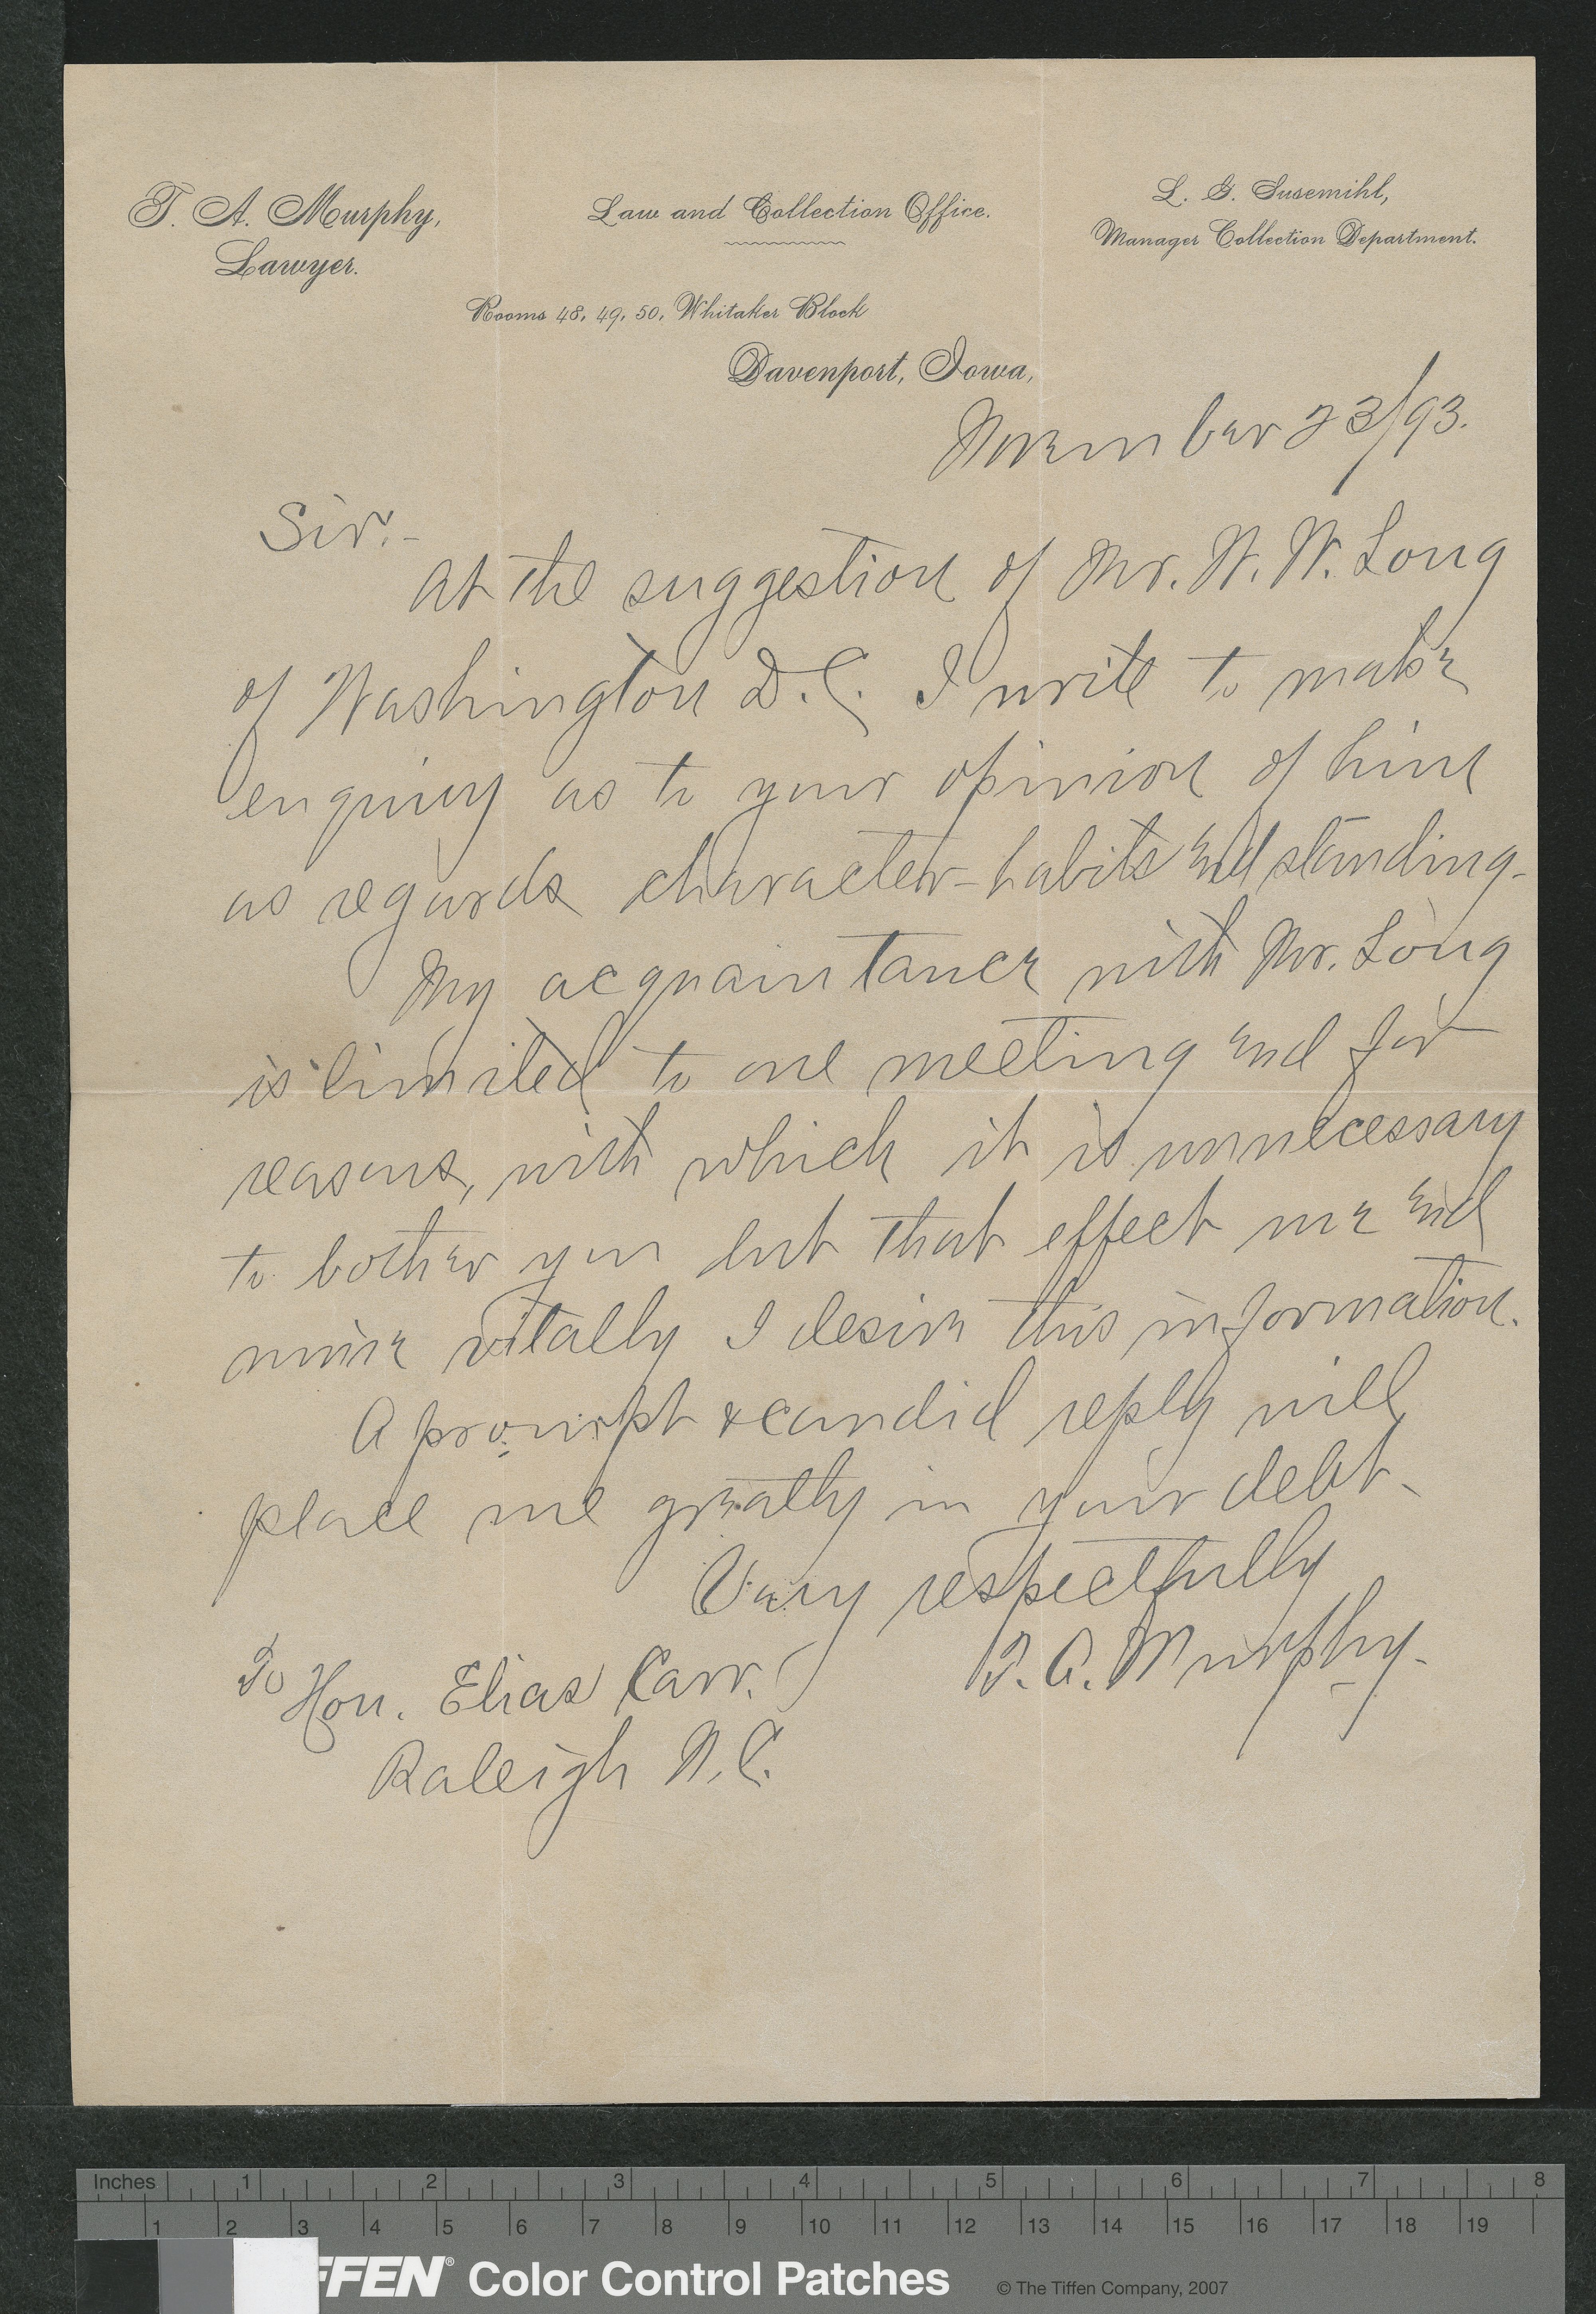 T. A. Murphy,
Lawyer.
Law and Collection Office.
L. G. Susemihl,
Manager Collection Department.
Rooms 48, 49, 50, Whitaker Block
Davenport, Iowa,
November 23/93.
Sir:-
At the suggestion of Mr. W. W. Long
of Washington D.C. I write to make
enquiry as to your opinion of him
as regards character-habits and standing-
My acquaintance with Mr. Long
is limited to one meeting and for
reasons, with which it is unnecessary
to bother you but that effect me and
mine vitally I desire this information.
A prompt & candid reply will
place me greatly in your debt-
Very respectfully
T. A. Murphy-
To Hon. Elias Carr.
Raleigh N.C.
Inches 1 2 3 4 5 6 7 8
1 2 3 4 5 6 7 8 9 10 11 12 13 14 15 16 17 18 19
FFEN® Color Control Patches © The Tiffen Company, 2007